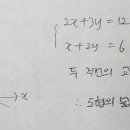 2x+3y=12
x+2y=6
두 직선의 교
x
∴ 조합의